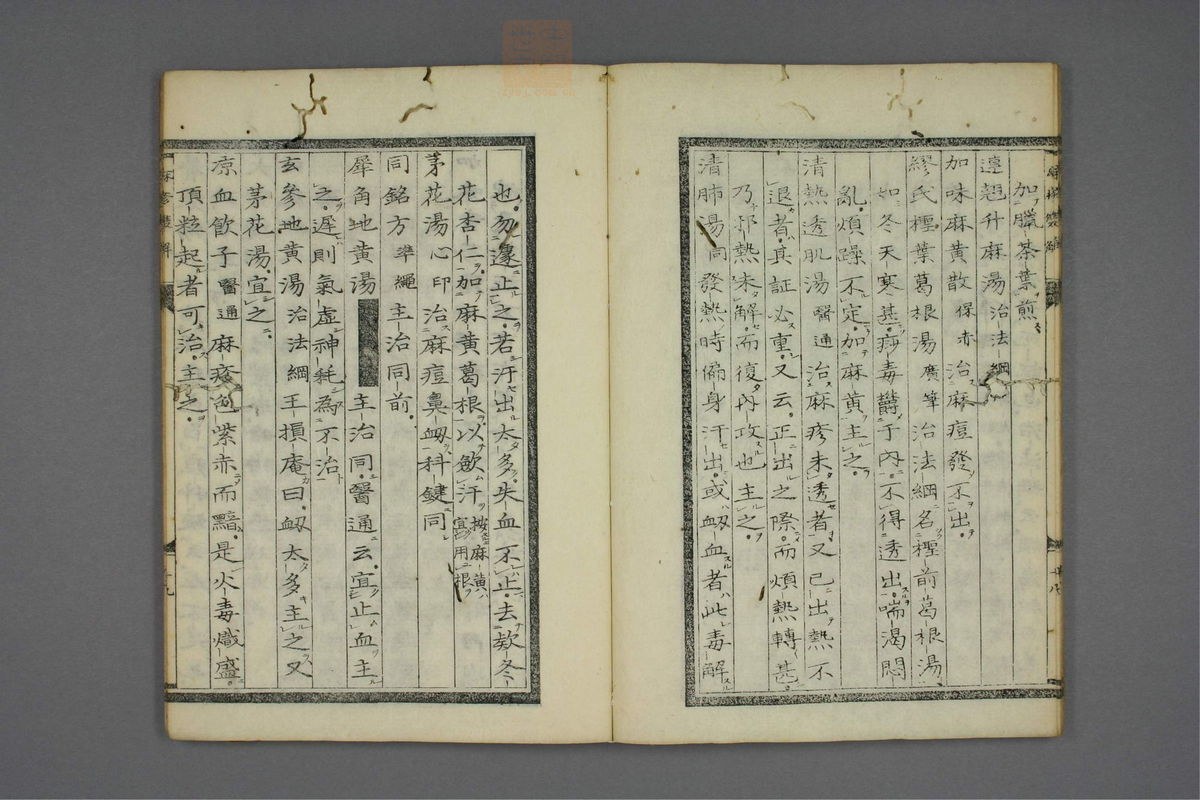 加臘茶葉煎
連翹升麻湯治法綱
加味麻黄散保赤治麻痘發不出
繆氏檉葉葛根湯廣筆治法綱名檉前葛根湯
如冬天寒甚痧毒欝于内不得透出喘渇悶
亂煩躁不定加麻黄主之
清熱透肌湯醫通治麻疹未透者又已出熱不
退者其証必重又云正出之際而煩熱轉甚
乃邪熱未解而復内攻也主之
清肺湯同發熱時徧身汗出或衂血者此毒解
也勿遽止之若汗出太多失血不止去欵冬
花杏仁加麻黄葛根以歛汗按麻黄宜用根
茅花湯心印治麻痘鼻衂科鍵同
同銘方準繩主治同前
犀角地黄湯主治同醫通云宜止血主
之遲則氣虚神耗為不治
玄參地黄湯治法綱王損庵曰衂太多主之又
茅花湯宜之
凉血飲子醫通麻疹色紫赤而黯是火毒熾盛
頂粒起者可治主之